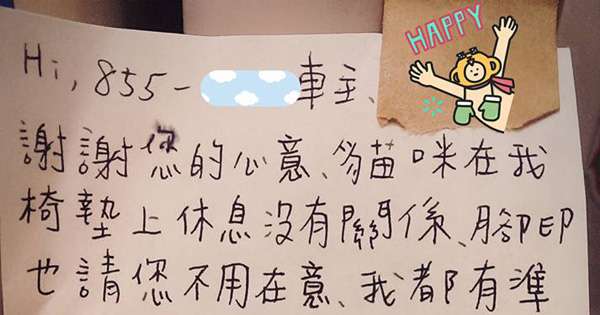 HAPPY
Hi, 855-車主、
謝謝您的心意、貓咪在我
椅墊上休息沒有關係、腳印
也請您不用在意、我都有準